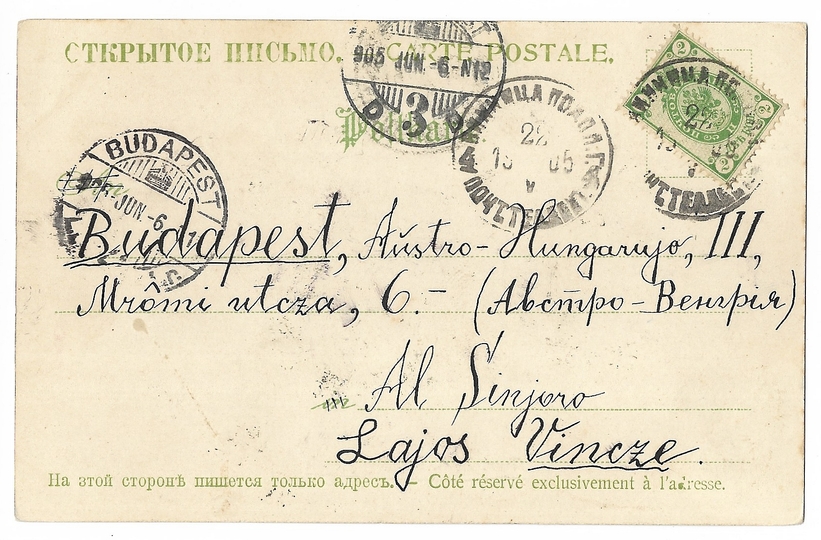 ОТКРЫТОЕ ПИСЬМО. – CARTE POSTALE.
905 JUN.-6-N12
3
BUDAPEST
JUN-6
22
05
V
22
05
V
2
2
2
Budapest, Aŭstro-Hungarujo, III,
utcza, 6.- (Австро-Венгрія)
Al Sinjoro
Lajos Vincze.
На этой сторонѣ пишется только адресъ. – Côté réservé exclusivement à l'adresse.